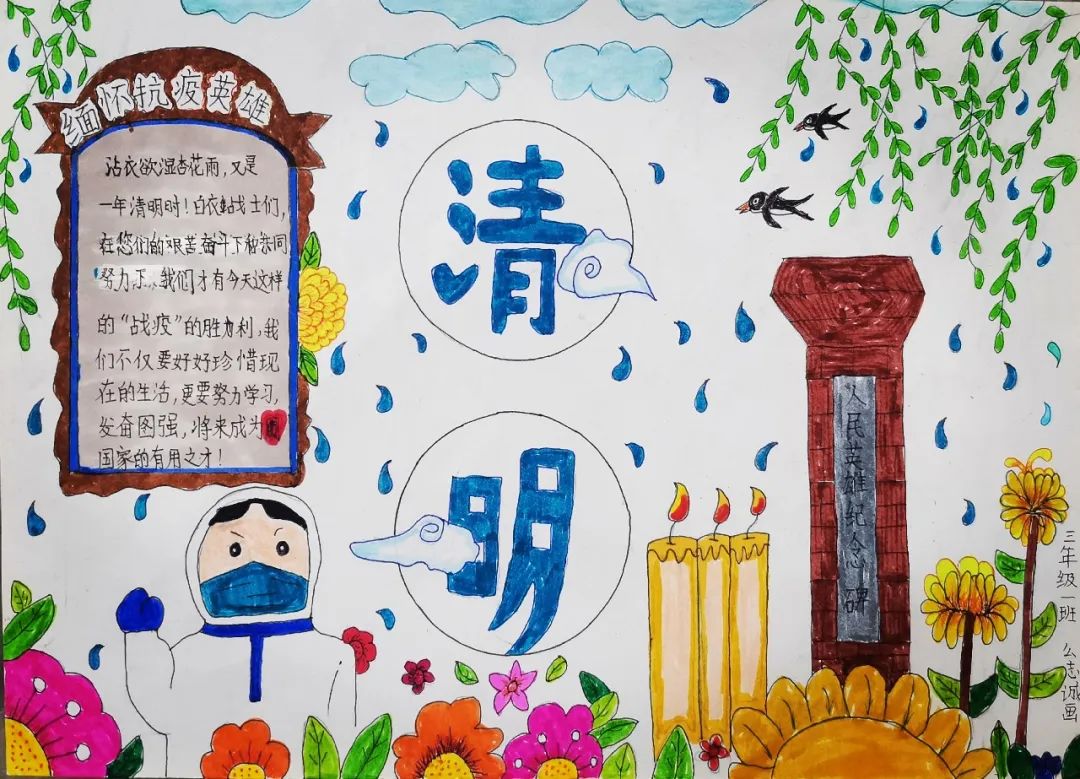 缅怀抗疫英雄
沾衣欲湿杏花雨，又是
一年清明时！白衣战士们，
在您们的艰苦奋斗下和共同
努力下，我们才有今天这样
的“战疫”的胜利，我
们不仅要好好珍惜现
在的生活，更要努力学习，
发奋图强，将来成为
国家的有用之才！
清
明
人民英雄纪念碑
三年级一班 么志诚画